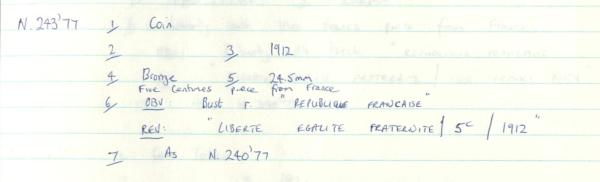 N. 243'77 1/ Coin
2/ 3/ 1912
4/ Bronze 5/ 24.5mm
Five Centimes piece from France
6/ OBV: Bust r. "REPUBLIQUE FRANCAISE"
REV: "LIBERTE EGALITE FRATERNITE / 5c / 1912"
7/ As N. 240'77